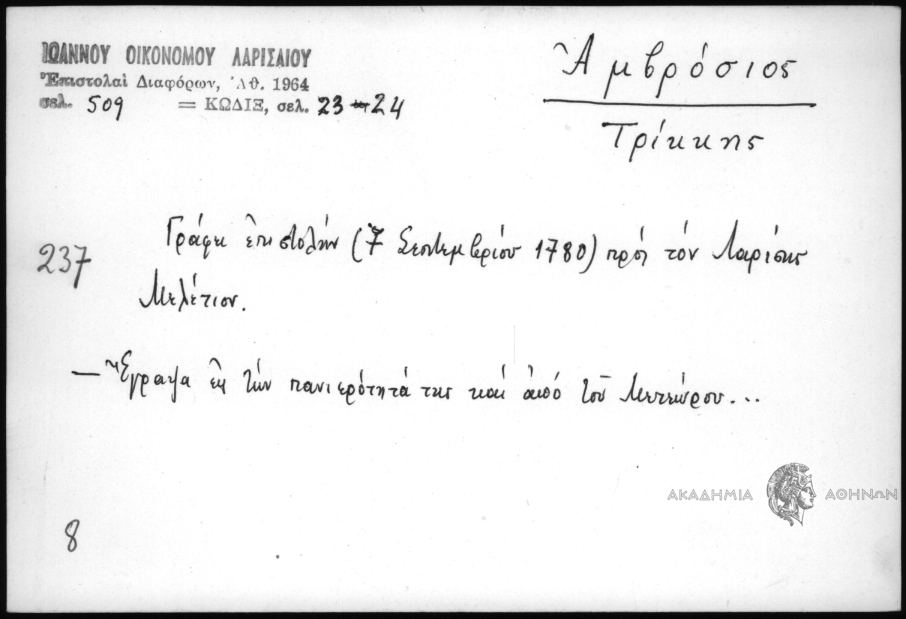 ΙΩΑΝΝΟΥ ΟΙΚΟΝΟΜΟΥ ΛΑΡΙΣΑΙΟΥ
Ἐπιστολαὶ Διαφόρων, Ἀθ. 1964
σελ. 509 = ΚΩΔΙΞ, σελ. 23-24
Ἀμβρόσιος
Τρίκκης
237
Γράφει ἐπιστολήν (7 Σεπτεμβρίου 1780) πρός τόν Λαρίσης
Μελέτιον.
— Ἔγραψα εἰς τήν πανιερότητά της καί ἀπό τοῦ Μετεώρου...
ΑΚΑΔΗΜΙΑ ΑΘΗΝΩΝ
8